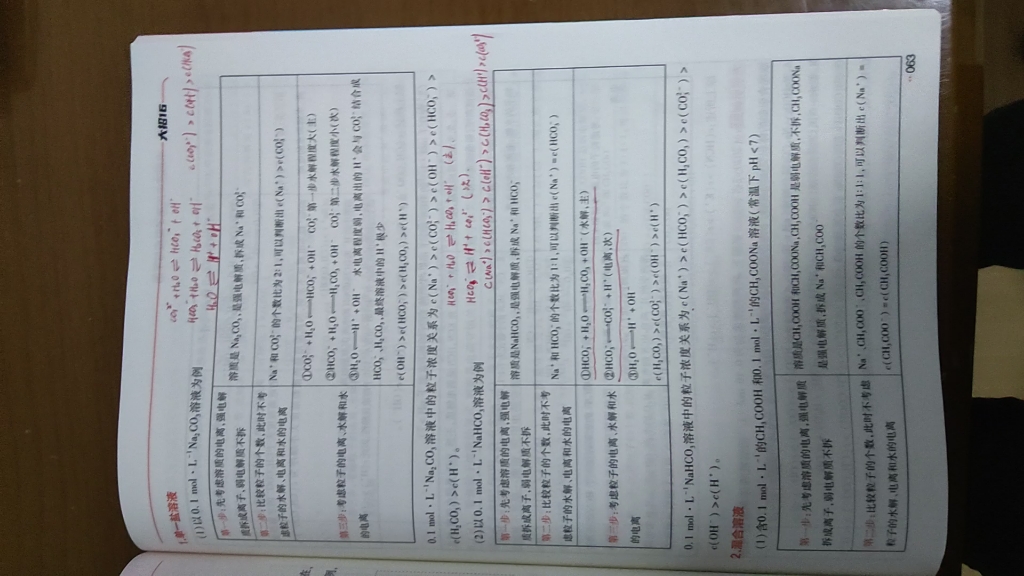 大招16
1.单一盐溶液
CO₃²⁻+H₂O⇌HCO₃⁻+OH⁻
HCO₃⁻+H₂O⇌H₂CO₃+OH⁻
H₂O⇌H⁺+OH⁻
(1)以0.1 mol·L⁻¹Na₂CO₃溶液为例
第一步:先考虑溶质的电离,强电解
质拆成离子,弱电解质不拆
溶质是Na₂CO₃,是强电解质,拆成Na⁺和CO₃²⁻
第二步:比较粒子的个数,此时不考
虑粒子的水解、电离和水的电离
Na⁺和CO₃²⁻的个数比为2:1,可以判断出c(Na⁺)>c(CO₃²⁻)
第三步:考虑粒子的电离、水解和水
的电离
①CO₃²⁻+H₂O⇌HCO₃⁻+OH⁻ CO₃²⁻第一步水解程度大(主)
②HCO₃⁻+H₂O⇌H₂CO₃+OH⁻ CO₃²⁻第二步水解程度小(次)
③H₂O⇌H⁺+OH⁻ 水电离程度弱,电离出的H⁺会与CO₃²⁻结合成
HCO₃⁻、H₂CO₃,最终溶液中的H⁺极少
c(OH⁻)>c(HCO₃⁻)>c(H₂CO₃)>c(H⁺)
0.1 mol·L⁻¹Na₂CO₃溶液中的粒子浓度关系为c(Na⁺)>c(CO₃²⁻)>c(OH⁻)>c(HCO₃⁻)>
c(H₂CO₃)>c(H⁺)。
HCO₃⁻+H₂O⇌H₂CO₃+OH⁻(主)
HCO₃⁻⇌H⁺+CO₃²⁻(次)
c(Na⁺)>c(HCO₃⁻)>c(OH⁻)>c(H₂CO₃)>c(H⁺)>c(CO₃²⁻)
(2)以0.1 mol·L⁻¹NaHCO₃溶液为例
第一步:先考虑溶质的电离,强电解
质拆成离子,弱电解质不拆
溶质是NaHCO₃,是强电解质,拆成Na⁺和HCO₃⁻
第二步:比较粒子的个数,此时不考
虑粒子的水解、电离和水的电离
Na⁺和HCO₃⁻的个数比为1:1,可以判断出c(Na⁺)=c(HCO₃⁻)
第三步:考虑粒子的电离、水解和水
的电离
①HCO₃⁻+H₂O⇌H₂CO₃+OH⁻(水解,主)
②HCO₃⁻⇌CO₃²⁻+H⁺(电离,次)
③H₂O⇌H⁺+OH⁻
c(H₂CO₃)>c(CO₃²⁻)>c(OH⁻)>c(H⁺)
0.1 mol·L⁻¹NaHCO₃溶液中的粒子浓度关系为c(Na⁺)>c(HCO₃⁻)>c(H₂CO₃)>c(CO₃²⁻)>
c(OH⁻)>c(H⁺)。
2.混合溶液
(1)含0.1 mol·L⁻¹的CH₃COOH和0.1 mol·L⁻¹的CH₃COONa溶液(常温下pH<7)
第一步:先考虑溶质的电离,强电解质
拆成离子,弱电解质不拆
溶质是CH₃COOH和CH₃COONa,CH₃COOH是弱电解质,不拆,CH₃COONa
是强电解质,拆成Na⁺和CH₃COO⁻
第二步:比较粒子的个数,此时不考虑
粒子的水解、电离和水的电离
Na⁺、CH₃COO⁻、CH₃COOH的个数比为1:1:1,可以判断出c(Na⁺)=
c(CH₃COO⁻)=c(CH₃COOH)
063